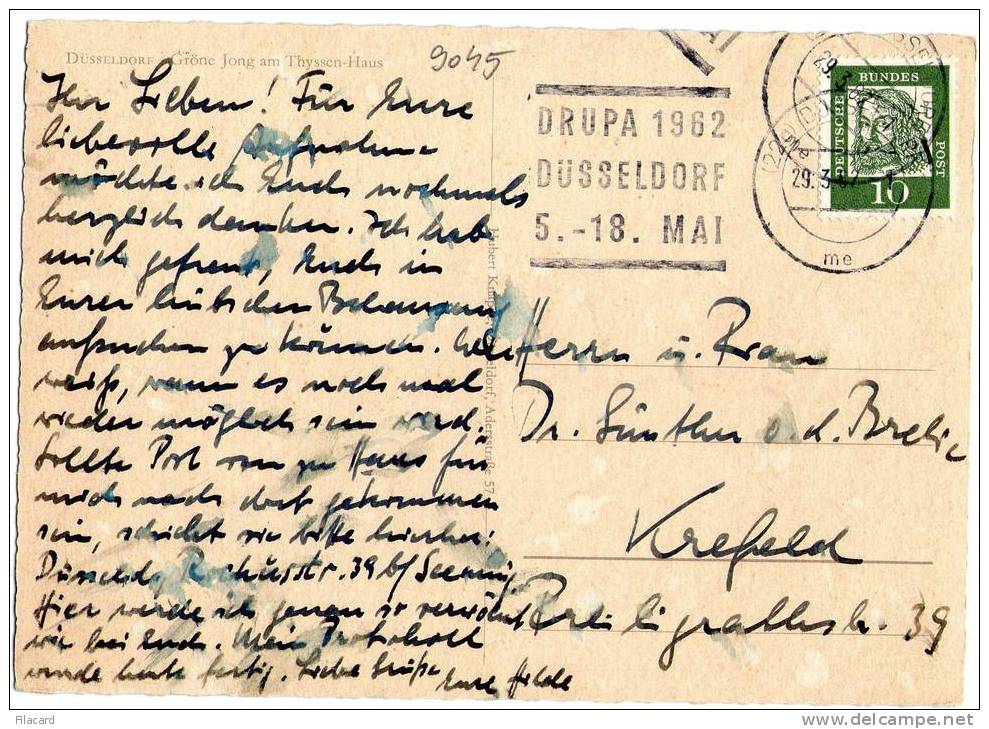 DÜSSELDORF Gröne Jong am Thyssen-Haus
9045
Ihr Lieben! Für Eure
liebevolle Aufnahme
möchte ich Euch nochmals
herzlich danken. Ich habe
mich gefreut, Euch in
Eurer hübschen Behausung
aufsuchen zu können. Wer
weiß, wann es noch mal
wieder möglich sein wird.
Sollte Post von zu Haus für
mich nach dort gekommen
sein, schickt sie bitte hierher:
Düsseld. Rochusstr. 39 b/
Hier werde ich genau so verwöhnt
wie bei Euch. Mein Protokoll
wurde heute fertig. Liebe Grüße
Eure Hilde
Adersstraße 57
DRUPA 1962
DÜSSELDORF
5.-18. MAI
29.3
(22a)
29.3.6
me
DEUTSCHE BUNDESPOST
10
Herrn u. Frau
Dr. Günther v. d.
Krefeld
Freiligrathstr. 39
Filacard
www.delcampe.net